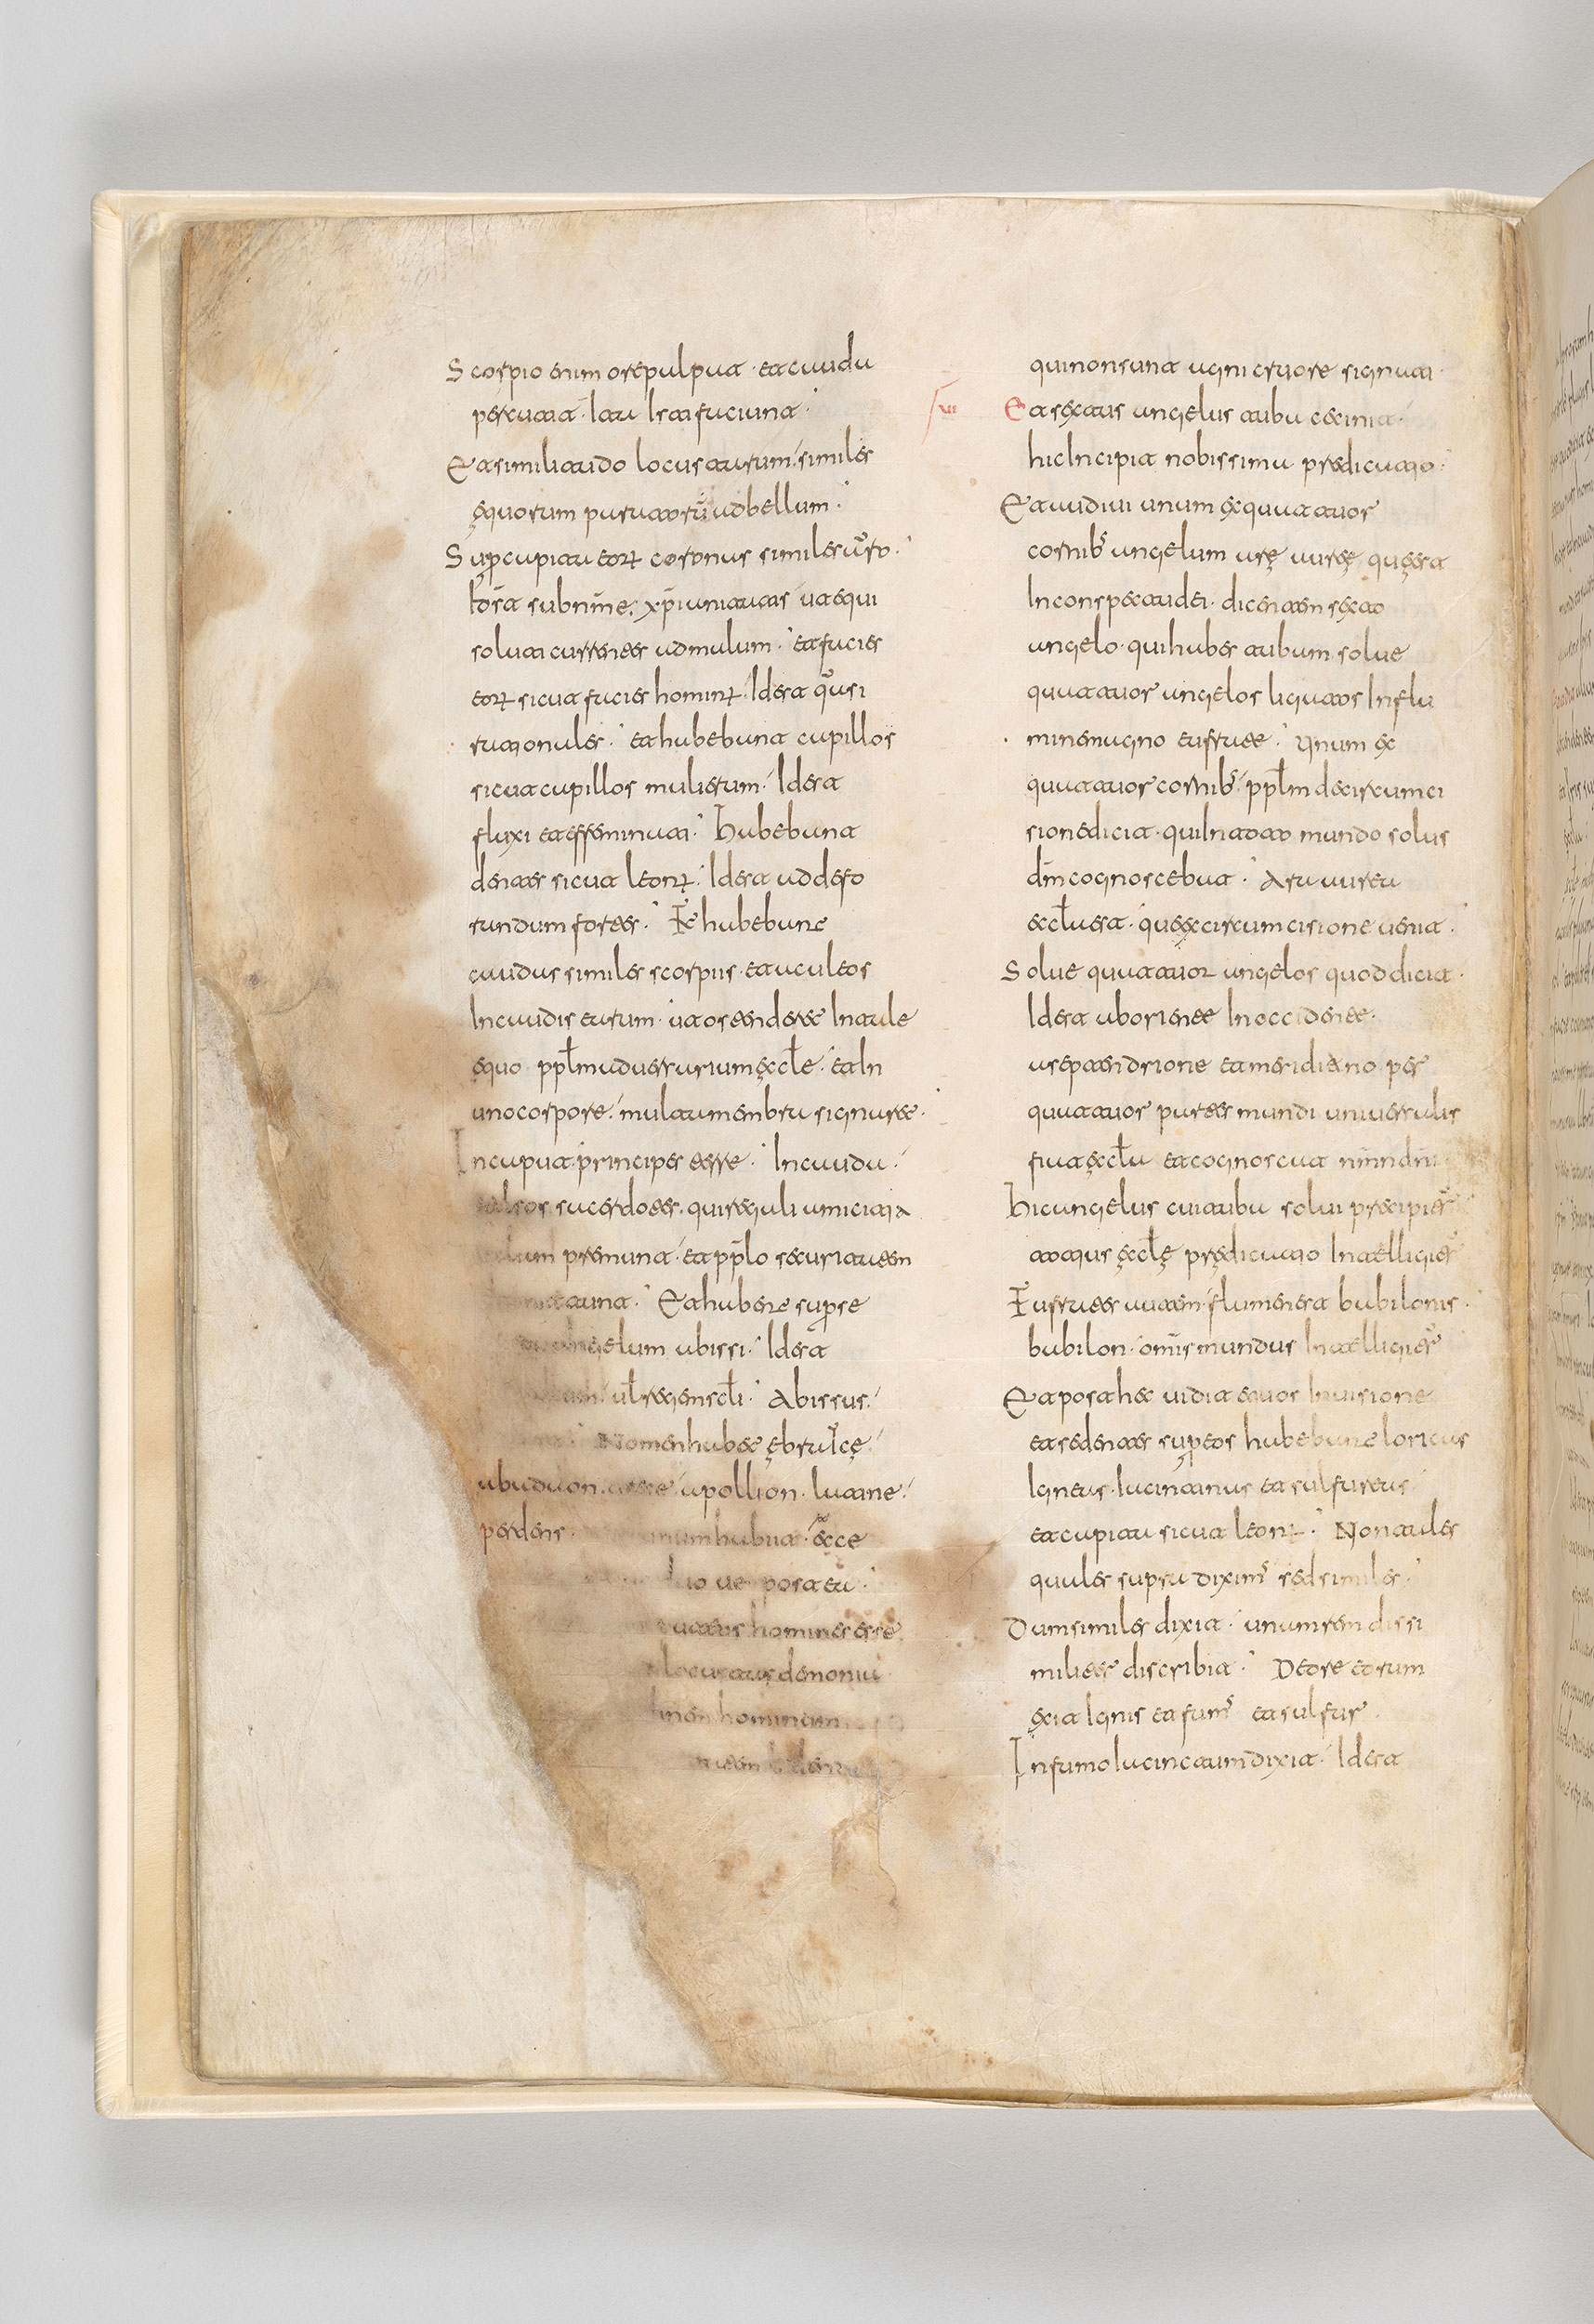 Scorpio enim ore palpat · et cauda
percutit · Ita isti faciunt ·
Et similitudo locustarum · similes
ęquorum paratorũ ad bellum ·
Sup capita eoꝝ coronas similes auro ·
Id ẽst sub nm̃e xp̃ianitatis ut equi
soluti currentes ad malum · et facies
eoꝝ sicut facies hominꝝ · Id est quasi
rationales · et habebant capillos
sicut capillos mulierum · Id est
fluxi et effeminati · Habebant
dentes sicut leonꝝ · Id est ad devo
randum fortes · Et habebant
caudas similes scorpiis · et aculeos
In caudis earum · ut ostenderet In tale
ęquo pplm adversarium ęccłe · et In
uno corpore · multa menbra signaret ·
In caput principes esse · In cauda ·
falsos sacerdotes · qui reguli amicitia
premunt · et pplo securitatem
Et habere supr se
angelum abissi · Id est
uł regem scłi · Abissus ·
Nomen habet ębraice ·
abaddon · grece · apollion · latine ·
perdens · habiit · ecce
ve post ea ·
homines esse
locustas demonia
hominum
qui non sunt agni cruore signati ·
VI Et sextus angelus tuba cecinit ·
hic Incipit nobissima predicatio ·
Et audivi unum ex quattuor
cornib; angelum arę aureę quę est
In conspectu dei · dicentem sexto
angelo · qui habes tubam solve
quattuor angelos ligatos In flu
mine magno eufrate · Unum ex
quattuor cornib; · pplm de circumci
sione dicit · qui In toto mundo solus
dm̃ cognoscebat · Ara aurea
eccła est · que ex circumcisione venit ·
Solve quattuor angelos quod dicit ·
Id est ab oriente In occidente ·
a septentrione et meridiano per
quattuor partes mundi universalis
fiat ęccła et cognoscat nm̃ dni
Hic angelus cui tuba solui precipitur
totius ęccłę prędicatio Intelligitur
Eufrates autem flumen est babilonis ·
babilon · omĩs mundus Intelligitur
Et post hec vidit equos In visione
et sedentes super eos habebant loricas
Igneas · iacintinas et sulfureas
et capita sicut leonꝝ · Non tales
quales supra diximus sed similes ·
Dum similes dixit · unum rem dissi
militer discribit · De ore eorum
ęxit Ignis et fumus et sulfur ·
In fumo iacinctum dixit · Id est